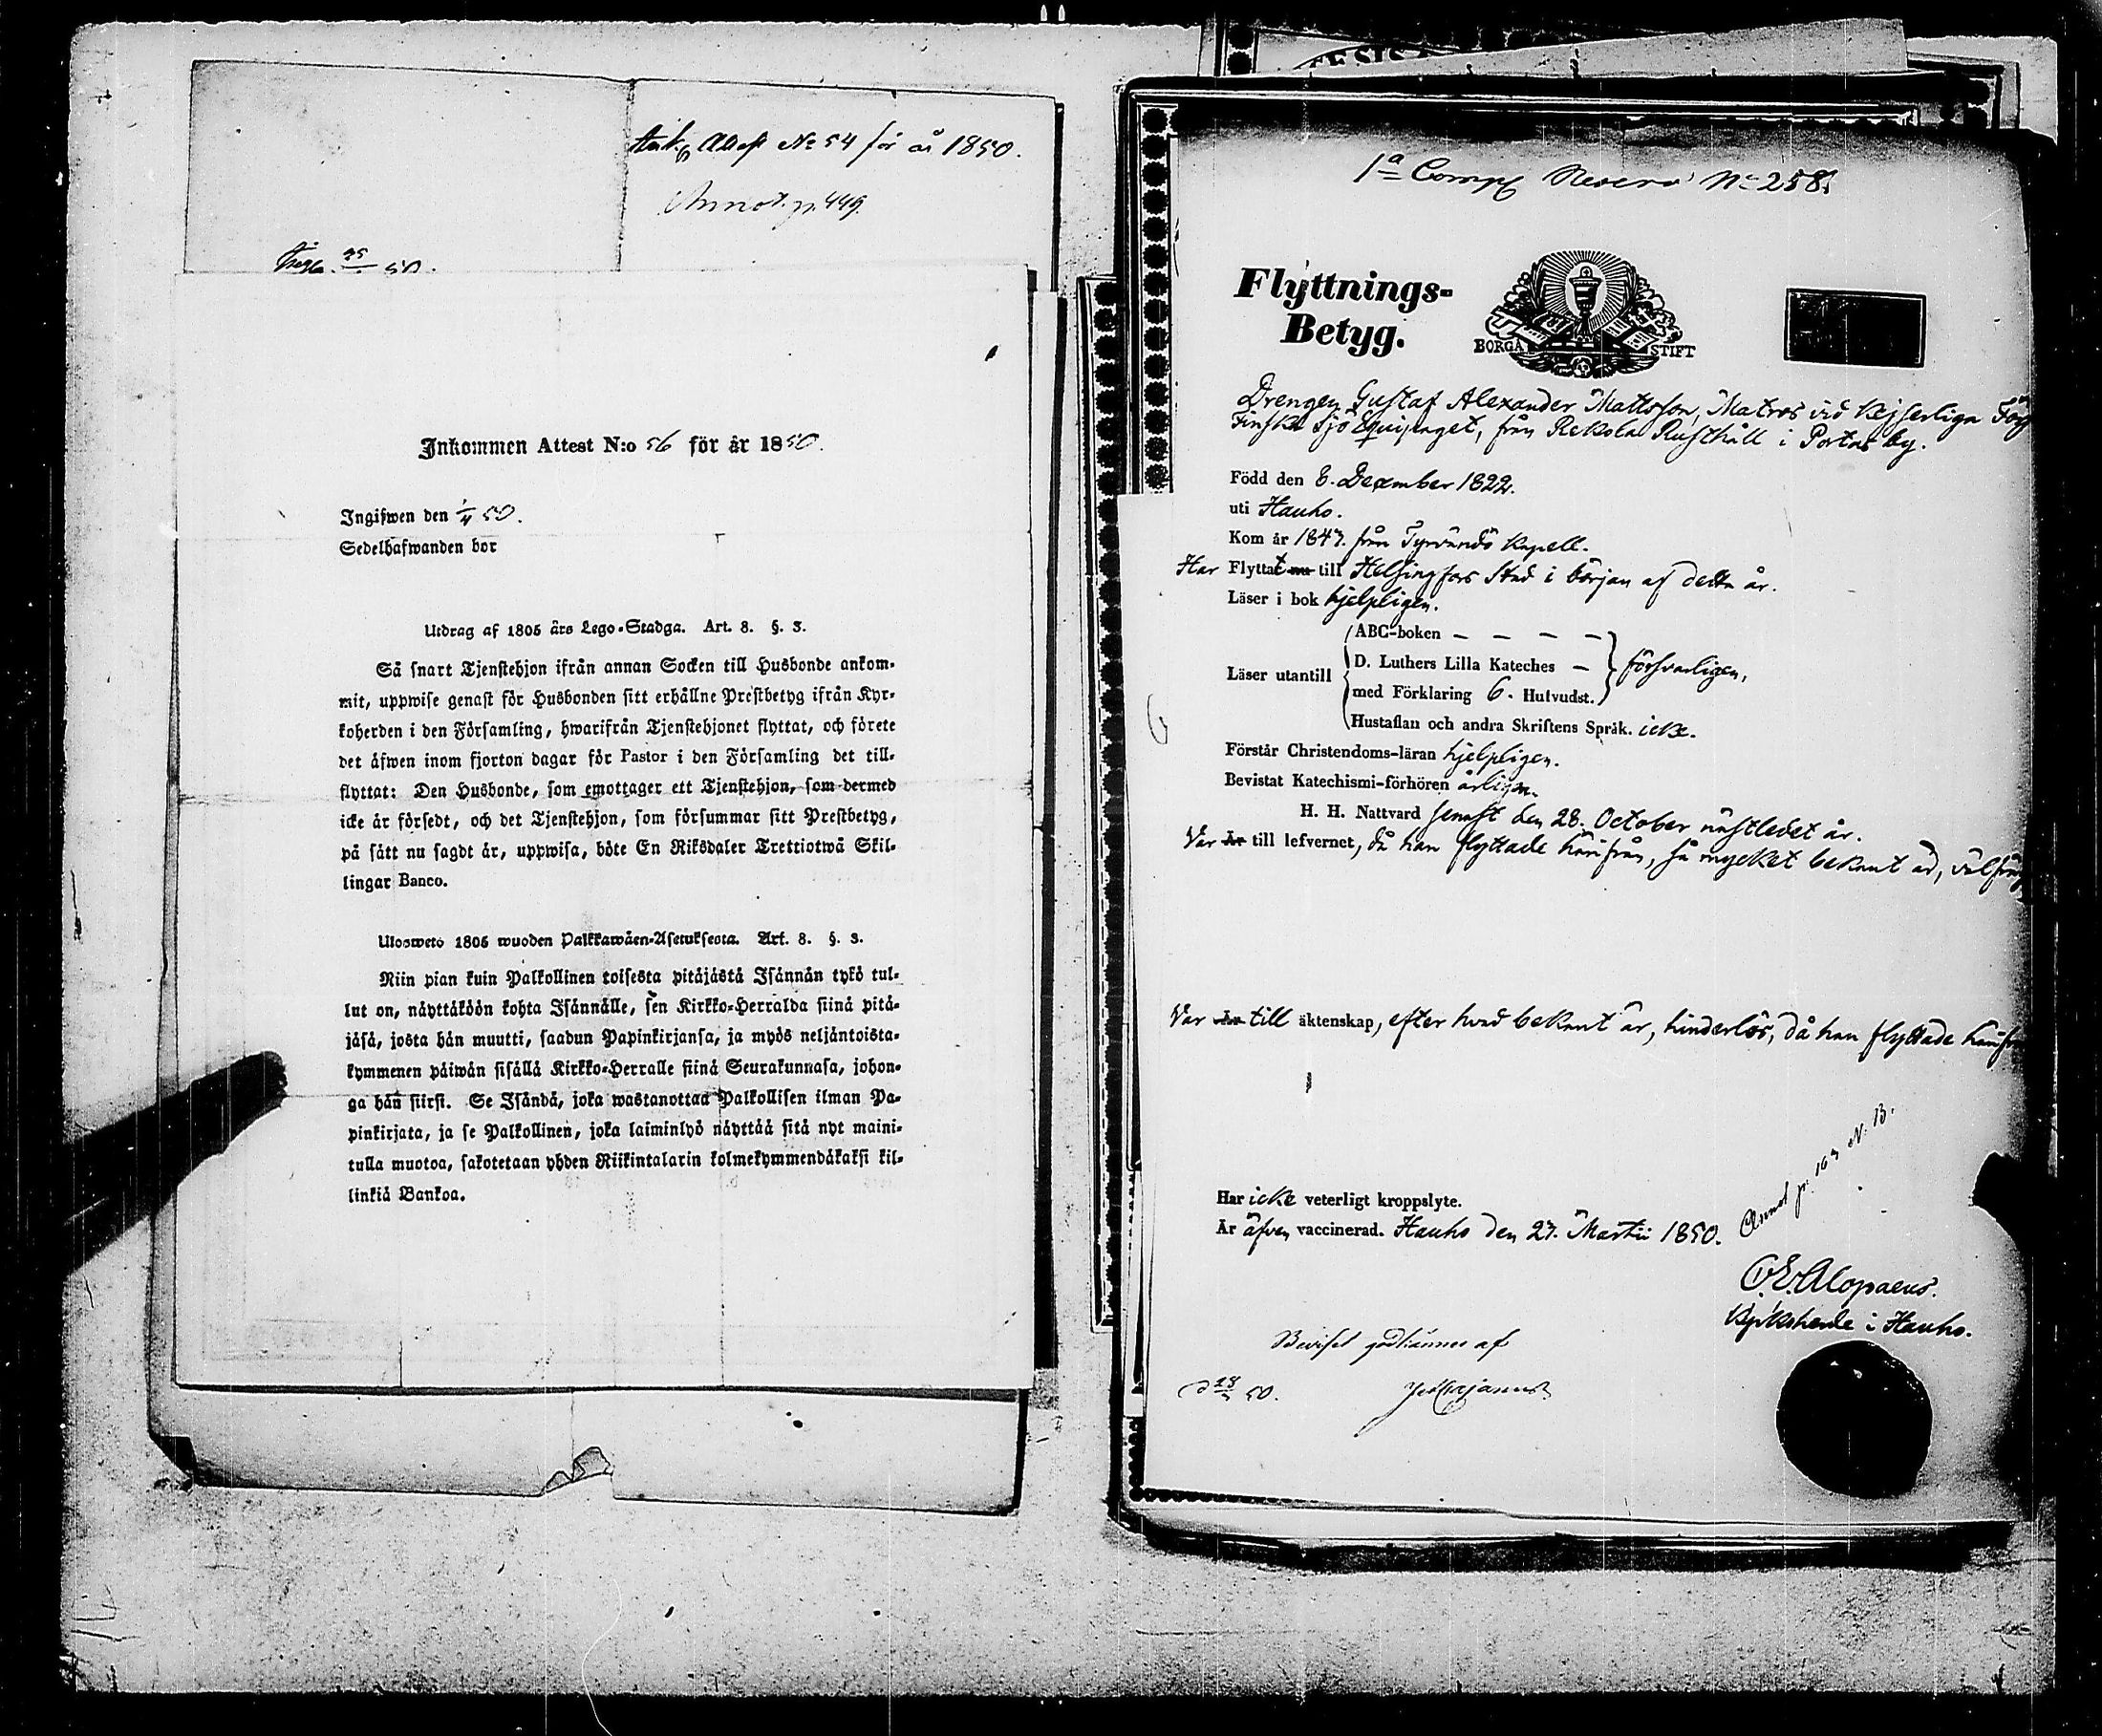 Ank. Attest No 54 för år 1850.
Annot. p. 449.
50.
Inkommen Attest N:o 56 för år 1850.
Ingifwen den 1/4 50.
Sedelhafwanden bor
Utdrag af 1805 års Lego-Stadga. Art. 8. §. 3.
Så snart Tjenstehjon ifrån annan Socken till Husbonde ankom-
mit, uppwise genast för Husbonden sitt erhållne Prestbetyg ifrån Kyr-
koherden i den Församling, hwarifrån Tjenstehjonet flyttat, och förete
det äfwen inom fjorton dagar för Pastor i den Församling det till-
flyttat: Den Husbonde, som emottager ett Tjenstehjon, som dermed
icke är försedt, och det Tjenstehjon, som försummar sitt Prestbetyg,
på sätt nu sagdt är, uppwisa, böte En Riksdaler Trettiotwå Skil-
lingar Banco.
Ulosweto 1805 wuoden Palkkawäen-Asetuksesta. Art. 8. §. 3.
Niin pian kuin Palkollinen toisesta pitäjästä Isännän tykö tul-
lut on, näyttäköön kohta Isännälle, sen Kirkko-Herralda siinä pitä-
jäsä, josta hän muutti, saadun Papinkirjansa, ja myös neljäntoista-
kymmenen päiwän sisällä Kirkko-Herralle siinä Seurakunnasa, johon-
ga hän siirsi. Se Isändä, joka wastanottaa Palkollisen ilman Pa-
pinkirjata, ja se Palkollinen, joka laiminlyö näyttää sitä nyt maini-
tulla muotoa, sakotetaan yhden Riikintalarin kolmekymmendäkaksi kil-
linkiä Bankoa.
1a Comp Reserv No 258.
Flyttnings-
Betyg.
BORGÅ STIFT
Drengen Gustaf Alexander Mattsson, Matros vid Kejserliga
Finska Sjö Equipaget, från Rekola Rusthåll i Portas by.
Född den 8. December 1822.
uti Hauho.
Kom år 1847. från Tyrvändö Kapell.
Har Flyttat nu till Helsingfors Stad i början af detta år.
Läser i bok hjelpligen.
Läser utantill
ABC-boken – – – –
D. Luthers Lilla Kateches –
med Förklaring 6. Hufvudst.
försvarligen,
Hustaflan och andra Skriftens Språk. icke.
Förstår Christendoms-läran hjelpligen.
Bevistat Katechismi-förhören årligen.
H. H. Nattvard senast den 28. October nästledet år.
Var Är till lefvernet, då han flyttade härifrån, så mycket bekant är,
Var Är till äktenskap, efter hvad bekant är, hinderlös, då han flyttade
Annot p. 163 N. B.
Har icke veterligt kroppslyte.
Är äfven vaccinerad. Hauho den 27. Martii 1850.
Alopaeus.
Kyrkoherde i Hauho.
Beviset godkännes af
50.